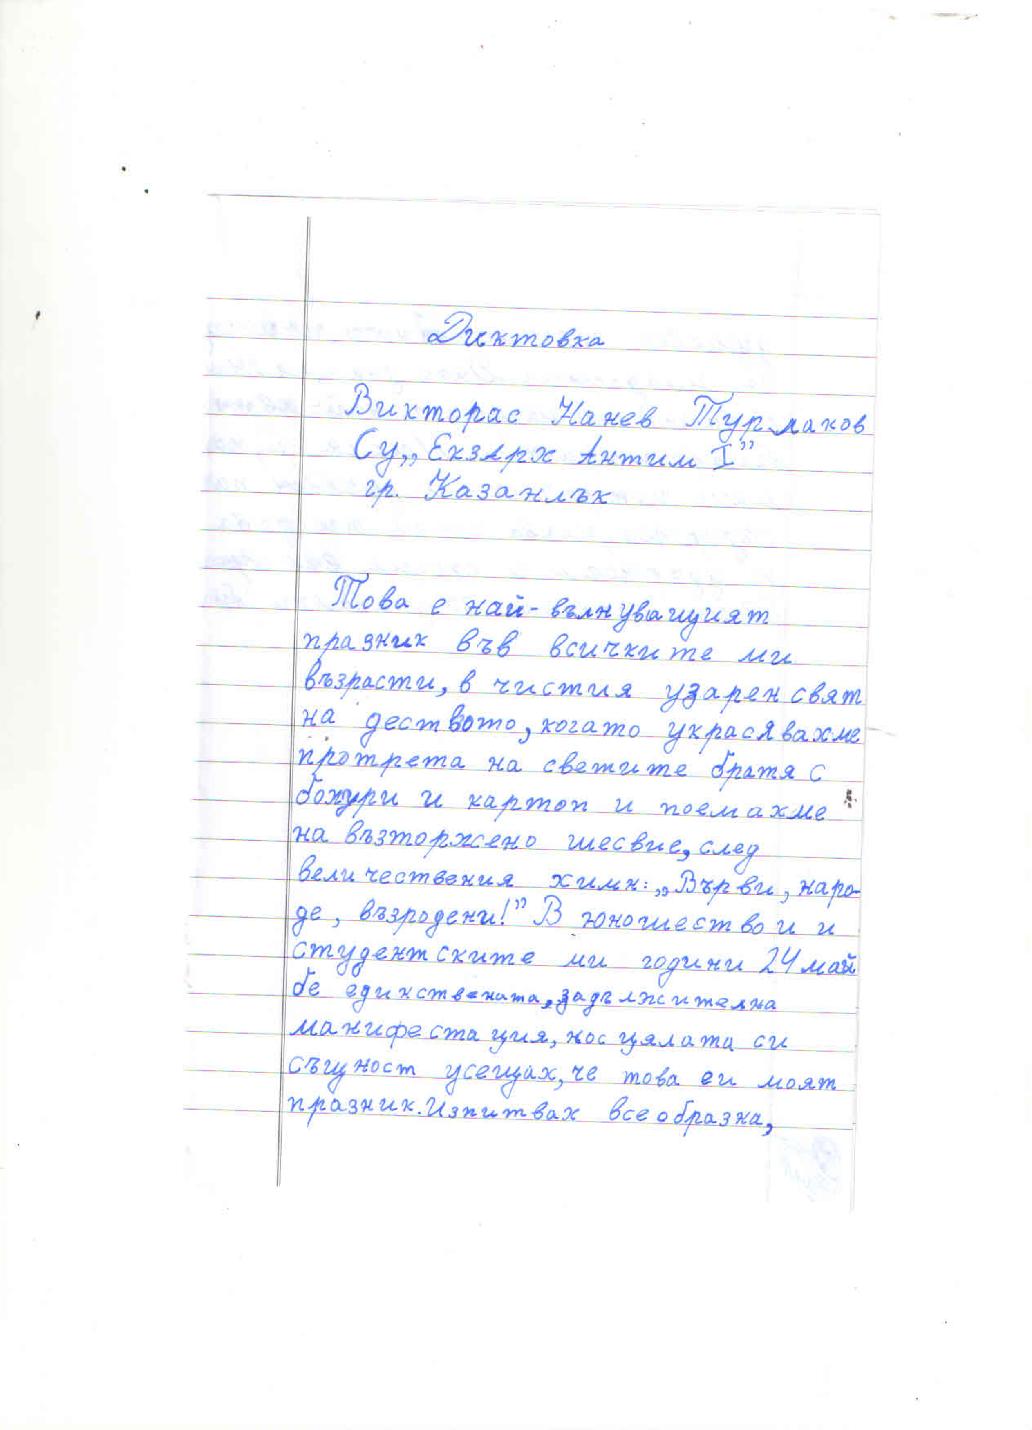 Диктовка
Викторас Нанев Турлаков
Су„Екзарх Антим I”
гр. Казанлък
Това е най-вълнуващият
празник във всичките ми
възрасти, в чистия узарен свят
на деството, когато украсявахме
протрета на светите братя с
божури и картон и поемахме
на възторжено шесвие, след
величествения химн: „Върви, наро-
де, възродени!” В юношество и и
студентските ми години 24 май
бе единствената, задължителна
манифестация, но с цялата си
същност усещах, че това е и моят
празник. Изпитвах всеобразна,